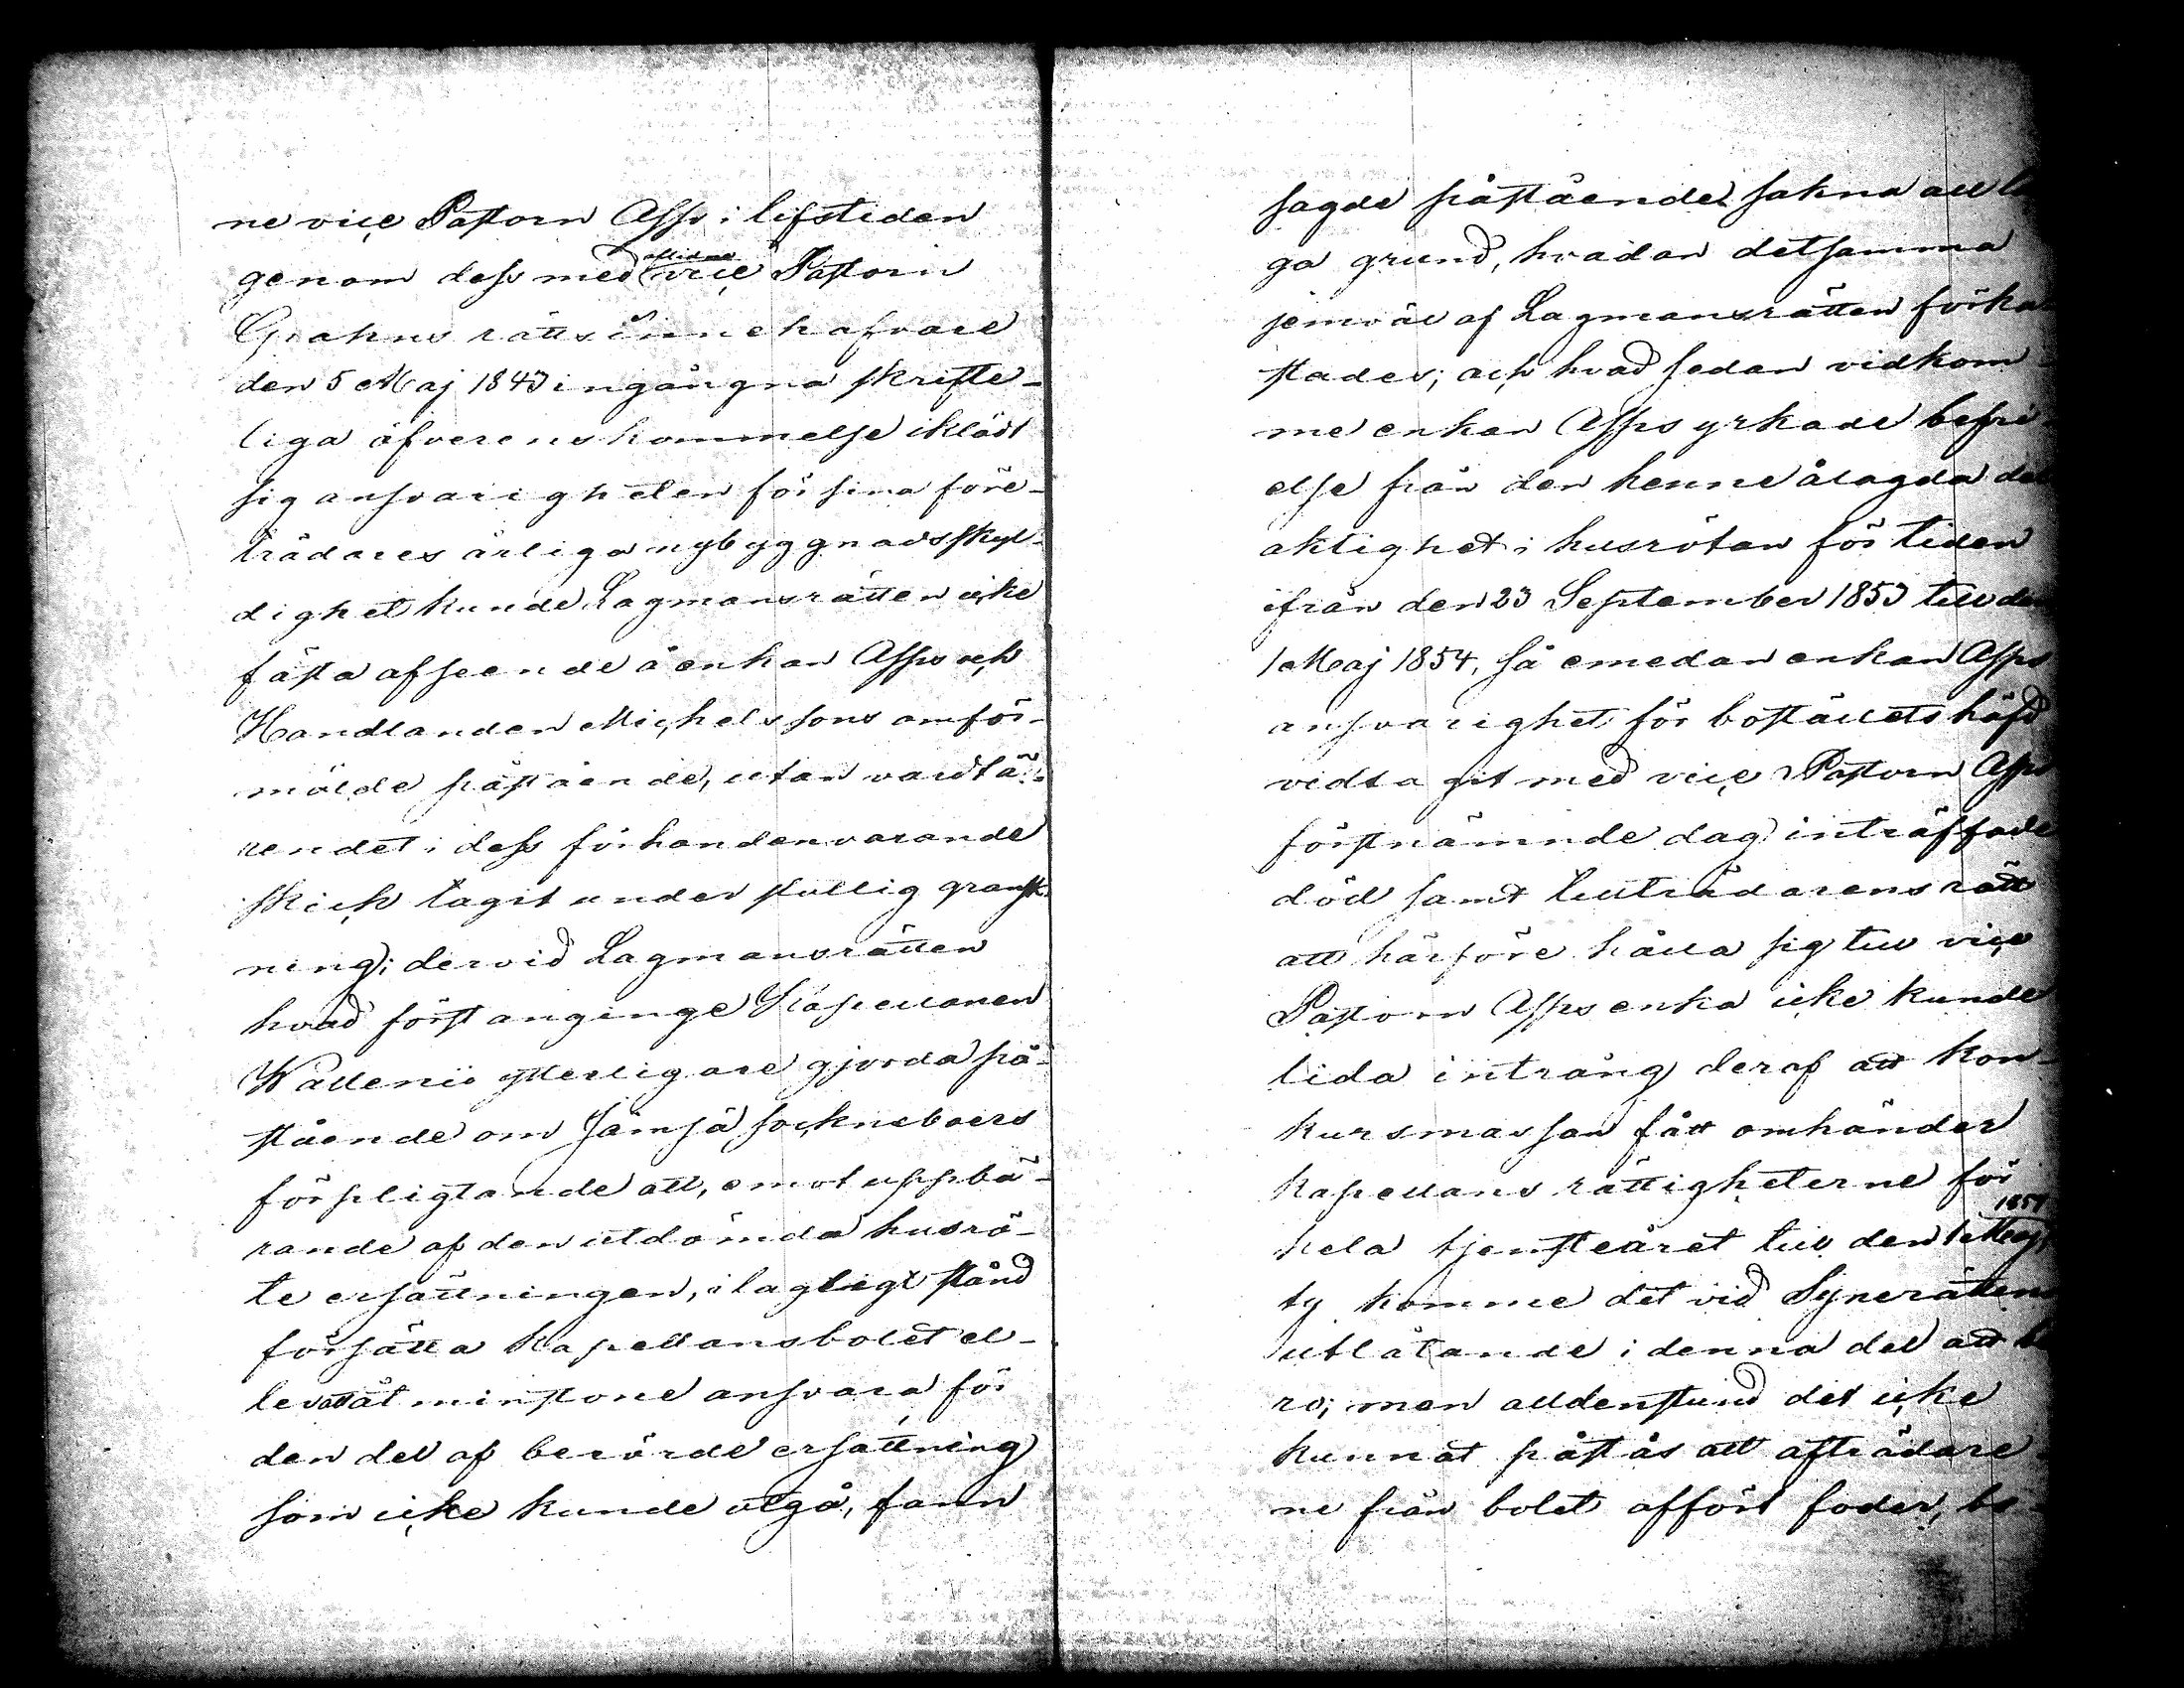 ne vice Pastorn Asps i lifstiden
genom dess med aflidne vice Pastorn
Grahns rättsinnehafvare
den 5 Maj 1843 ingångna skrifte-
liga öfverenskommelse iklädt
sig ansvarigheten för sina före-
trädares årliga nybyggnadsskyl-
dighet kunde Lagmansrätten icke
fästa afseende å enkan Asps och
Handlanden Michelssons omför-
mälde påstående, utan vardt ä-
rendet i dess förhandenvarande
skick tagit under slutlig gransk-
ning; dervid Lagmansrätten
hvad först anginge Kapellanen
Wallenii ytterligare gjorda på-
stående om Jämsä sockneboers
förpligtande att, emot uppbä-
rande af den utdömda husrö-
te ersättningen, i lagligt stånd
försätta Kapellansbolet el-
ler åtminstone ansvara för
den del af berörde ersättning
som icke kunde utgå, fann
sagde påstående sakna all la
ga grund, hvadan detsamma
jemväl af Lagmansrätten förka-
stades; och hvad sedan vidkom-
me enkan Asps yrkade befri-
else från den henne ålagda del
aktighet i husrötan för tiden
ifrån den 23 September 1853 till den
1 Maj 1854, så emedan enkan Asps
ansvarighet för boställets häfd
vidtagit med vice Pastorn Asps
förstnämnde dag inträffade
död samt tillträdarens rätt
att härföre hålla sig till vice
Pastorn Asps enka icke kunde
lida intrång deraf att kon-
kursmassan fått omhänder
kapellans rättigheterne för
hela tjensteåret till den 1 Maj 1854
ty komme det vid Synerättens
utlåtande i denna del att be
ro; men alldenstund det icke
kunnat påstås att afträdare-
ne från bolet affört foder, be-